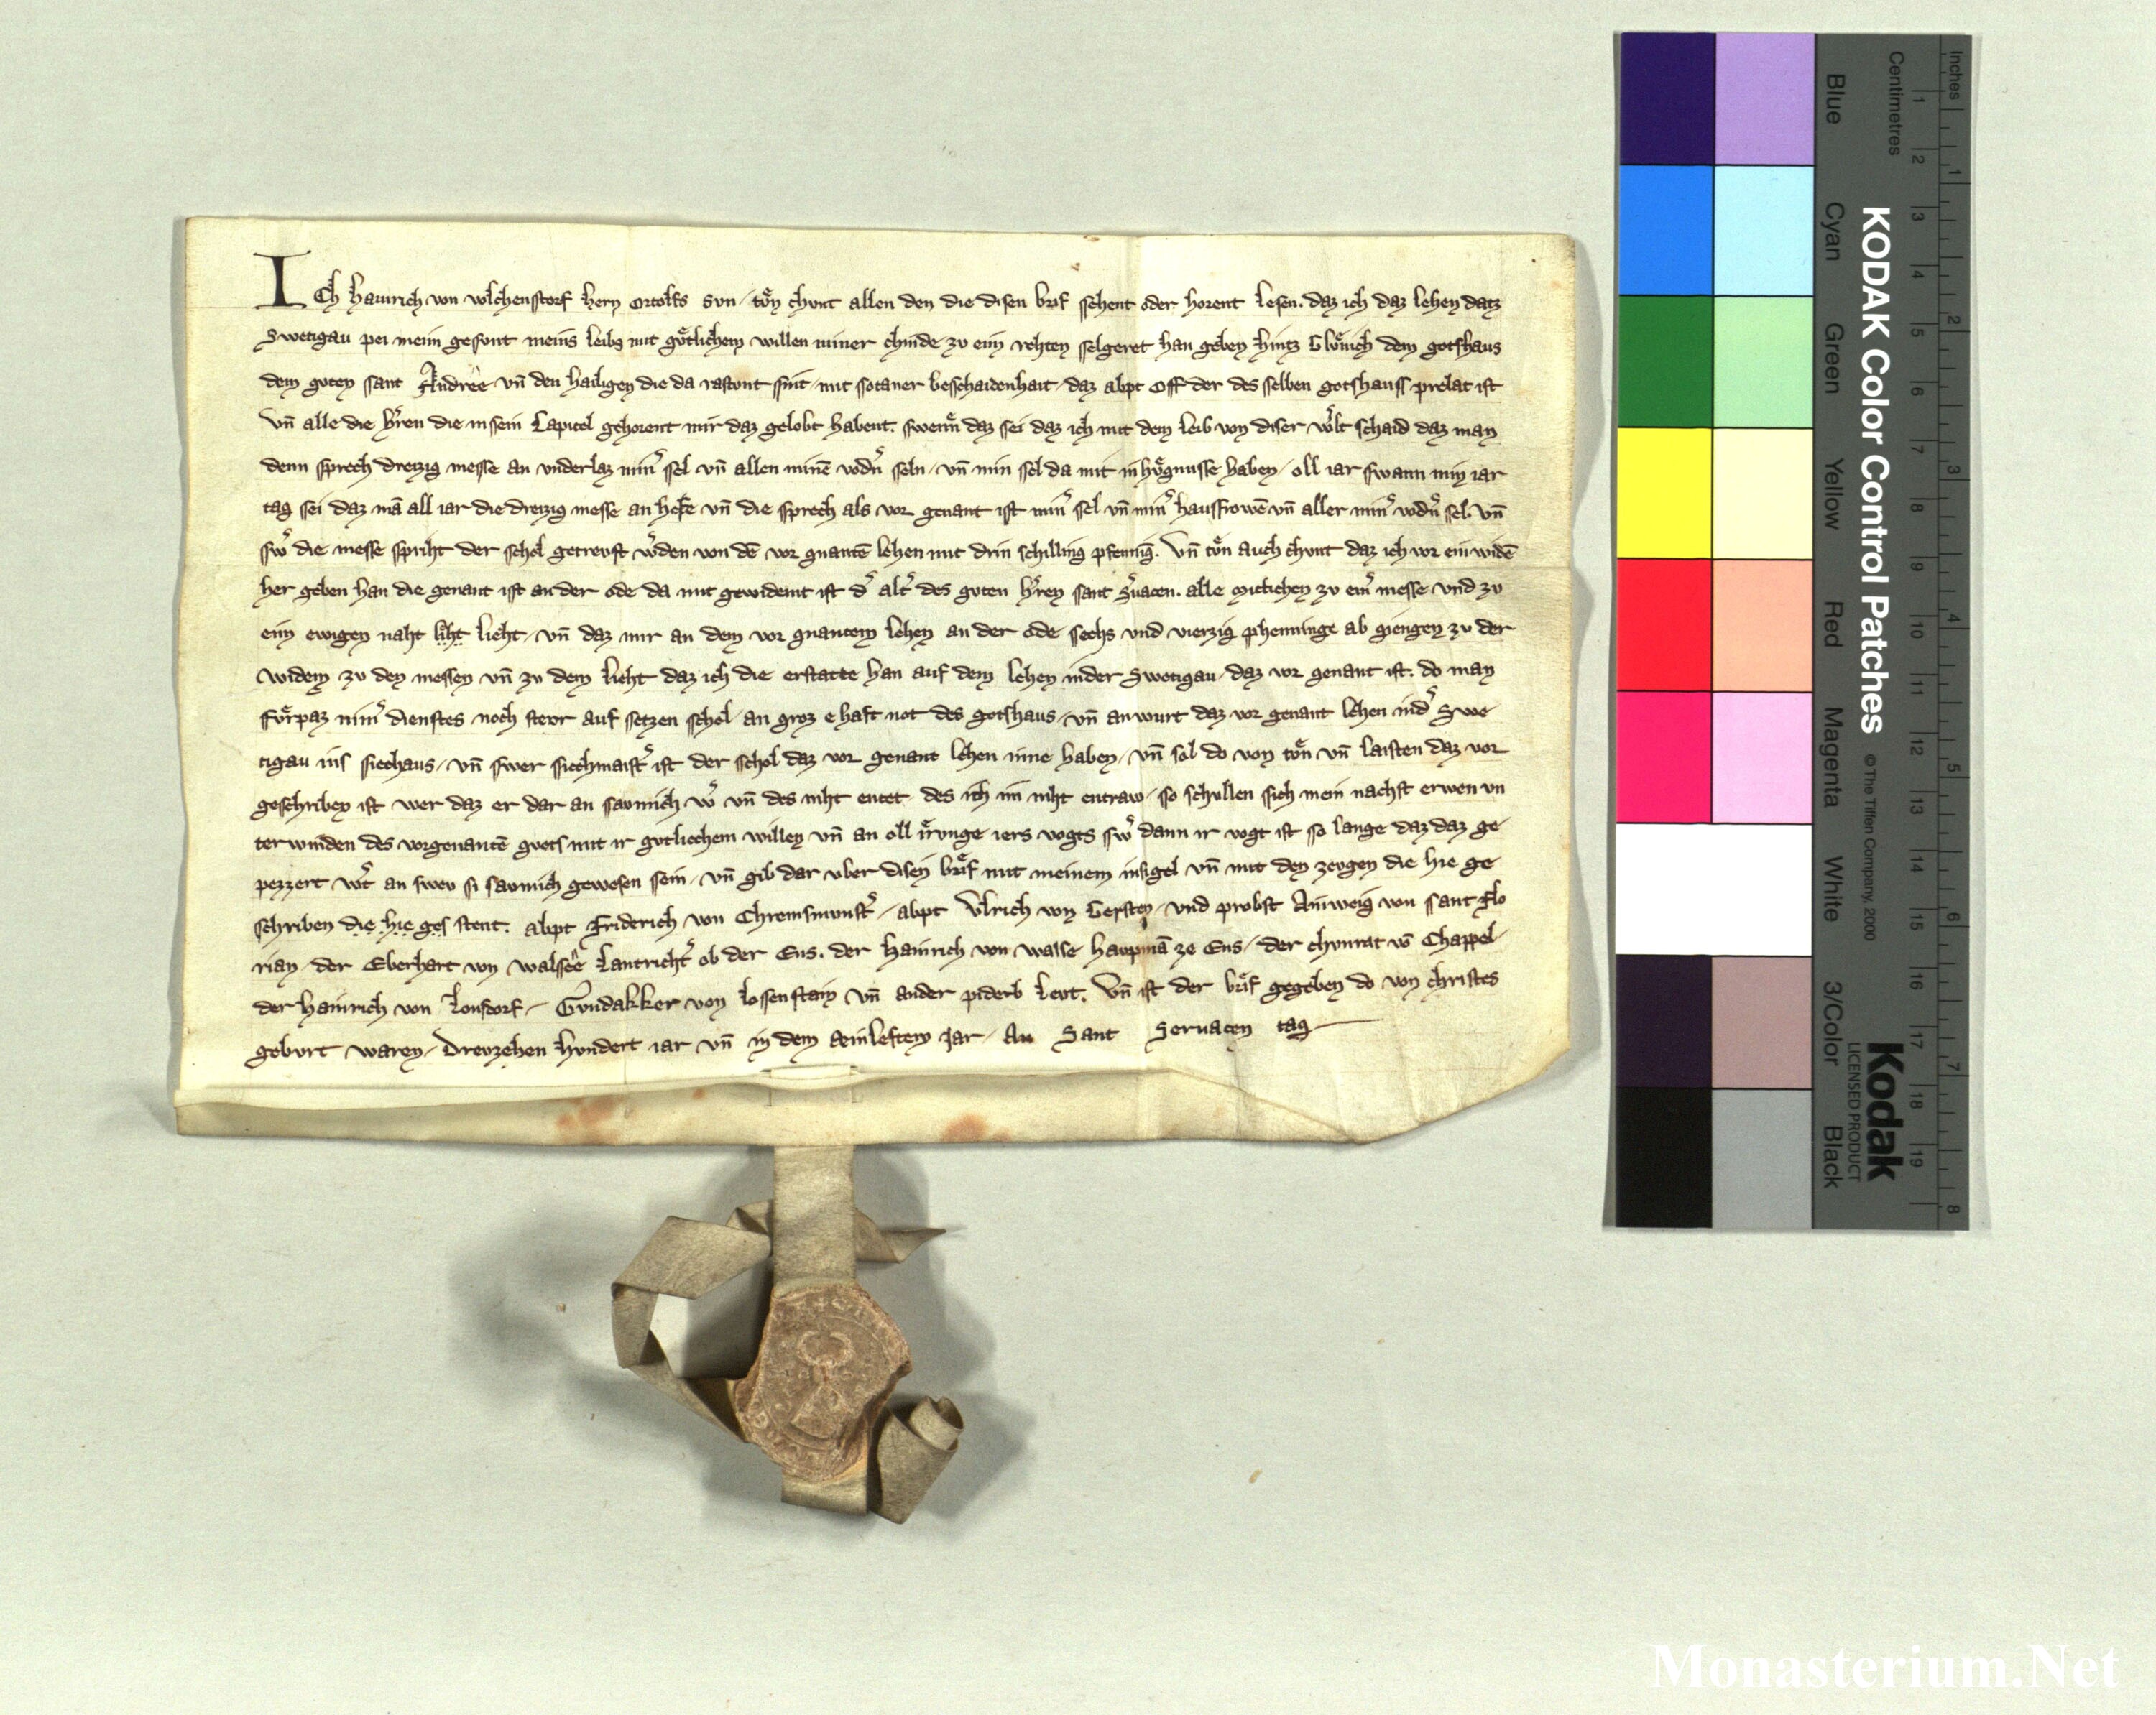 Ich Hainrich von volchenstorf hern Ortolfs svn / tvͤn chvnt allen den die disen brif sehent oder horent lesen. daz ich daz lehen datz
Swetigau pei meim gesvnt meins leibs mit gvͤtlichem willen miner chinde zv eim rehten selgeret han geben hintz Glvͤnich dem gotshaus
dem gvten sant Andree / vn̄ den hailigen die da rastont sint / mit sotaner beschaidenhait / daz abpt Off der des selben gotshauss prelat ist
Vn̄ alle die h̾ren die in sein Capitel gehorent mir daz gelobt habent. swenn daz sei daz ich mit dem leib von diser w̾lt schaid daz man
denn sprech dreizig messe an vnderlaz min̾ sel vn̄ allen minē vodn̾ seln / vn̄ min sel da mit in hvͤgnusse haben / oll iar swann min iar
tag sei daz mā all iar die dreizig messe an hefe vn̄ die sprech als vor genant ist min̾ sel vn̄ min̾ hausfrowē vn̄ aller min̾ vodn̾ sel. vn̄
sw̾ die messe spriht der schol getrevst w̾den von dē vor gnantē lehen mit drin schilling pfennig. Vn̄ tvͤn auch chvnt daz ich vor ein widē
her geben han die genant ist an der ode da mit gewidemt ist d̾ alt̾ des gvten h̾ren sant S̾uacen. alle mitichen zv eim̾ messe vnd zv
eim ewigen naht liht lieht / vn̄ daz mir an dem vor gnantem lehen an der ode sechs vnd vierzig phenninge ab giengen zv der
widem zv den messen vn̄ zv dem lieht daz ich die erstatte han auf dem lehen in der Swetigau / daz vor genant ist. do man
fvͤrpaz nim̾ dienstes noch stevr auf setzen schol / an groz ehaft not des gotshaus / vn̄ anwurt daz vor genant lehen in d̾ Swe
tigau ins siechaus / vn̄ swer siechmaist̾ ist der schol daz vor genant lehen inne haben / vn̄ sol do von tvͤn vn̄ laisten daz vor
geschriben ist wer daz er dar an savmich w̾ vn̄ des niht entet / des ich im niht entraw / so schullen sich mein nachst erwen vn
terwinden des vorgenantē gvets mit ir gvtlicchem willen vn̄ an oll irrvnge iers vogts sw̾ dann ir vogt ist so lange daz daz ge
pezzert w̾t an swev si savmich gewesen sein / vn̄ gib dar vber disen brif mit meinem insigel vn̄ mit den zevgen die hie ge
schriben die hie ges stent. abpt Friderich von Chremsmvnst̾ / abpt Vlrich von Gersten / vnd probst Ainweig von sant Flo
rian / der Eberhart von Walssee Lantricht̾ ob der Ens. der Hainrich von Walse havpmā ze Ens / der chvnrat vō Chappel /
der Hainrich von Lonsdorf / Gvndakker von Lossenstain vn̄ ander piderb levt. Vn̄ ist der brif gegeben do von christes
gebvrt waren / Drevzehen hvndert iar vn̄ in dem aeinleftem Jar / An Sant Seruacen tag
Inches
Centimetres
KODAK Color Control Patches
© The Tiffen Company, 2000
Blue
Cyan
Green
Yellow
Red
Magenta
White
3/Color
Black
Kodak
LICENSED PRODUCT
1 2 3 4 5 6 7 8 9 10 11 12 13 14 15 16 17 18 19
1 2 3 4 5 6 7 8
Monasterium.Net